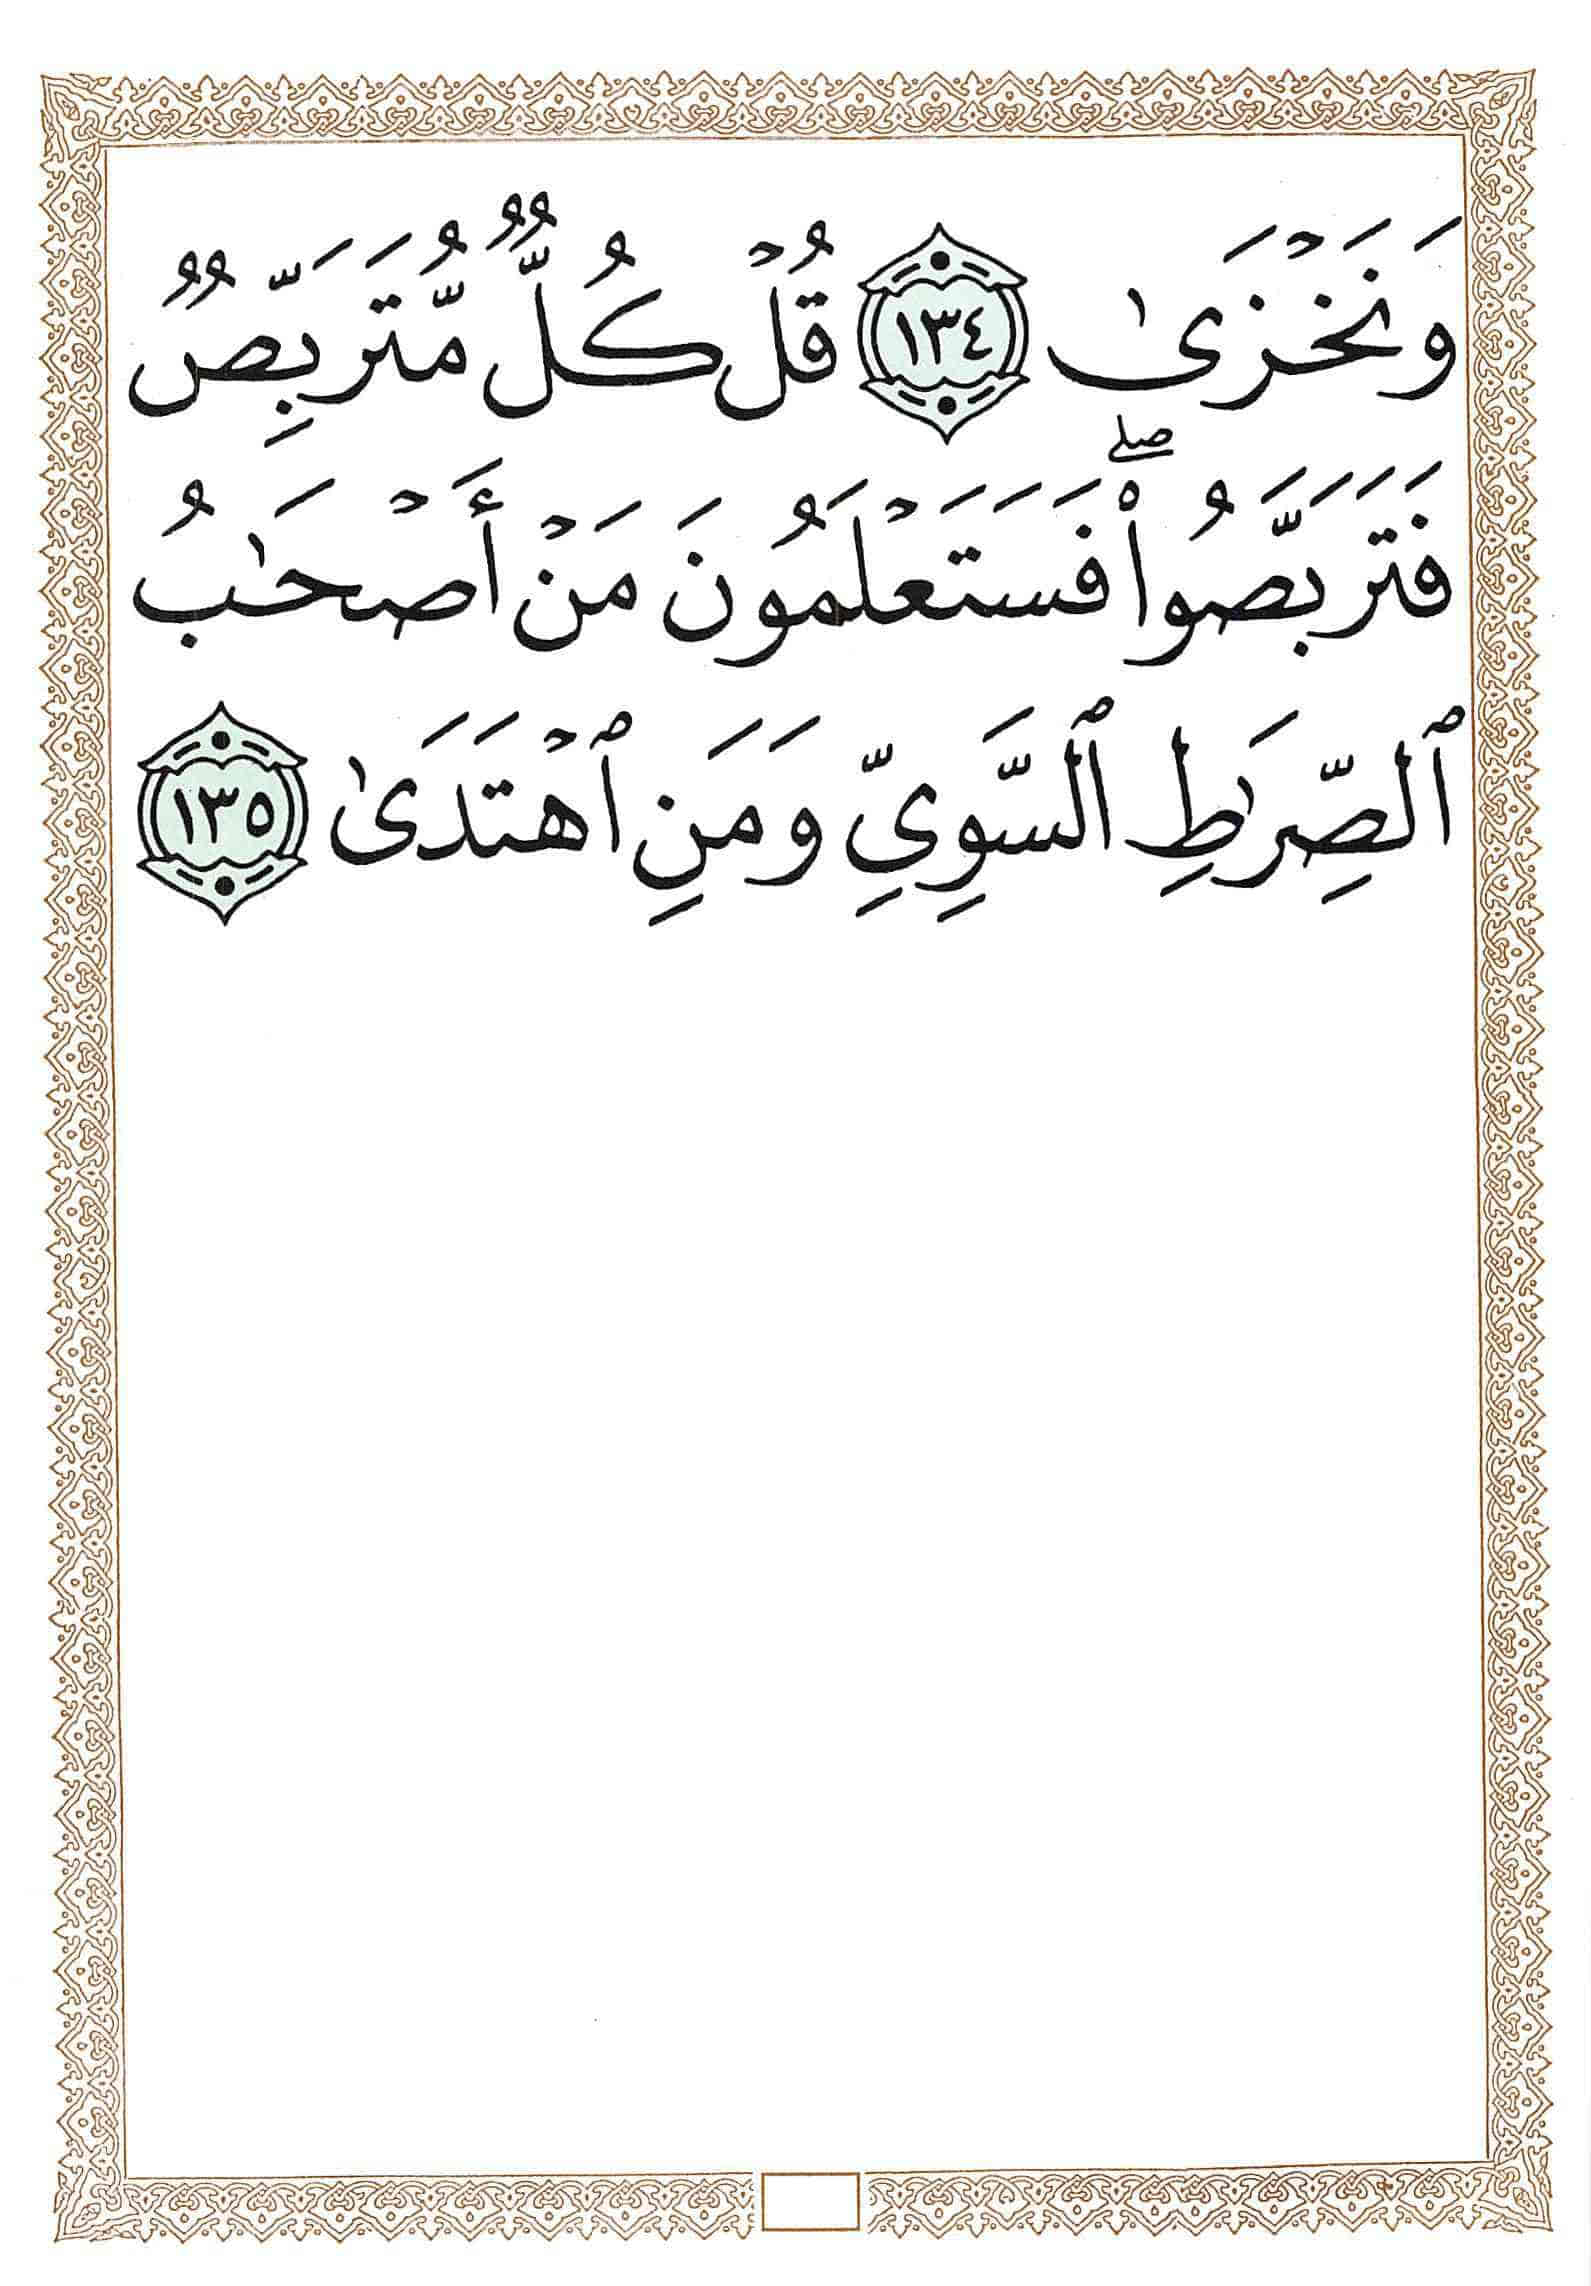 وَنَخۡزَىٰ ١٣٤ قُلۡ كُلّٞ مُّتَرَبِّصٞ
فَتَرَبَّصُواْۖ فَسَتَعۡلَمُونَ مَنۡ أَصۡحَٰبُ
ٱلصِّرَٰطِ ٱلسَّوِيِّ وَمَنِ ٱهۡتَدَىٰ ١٣٥